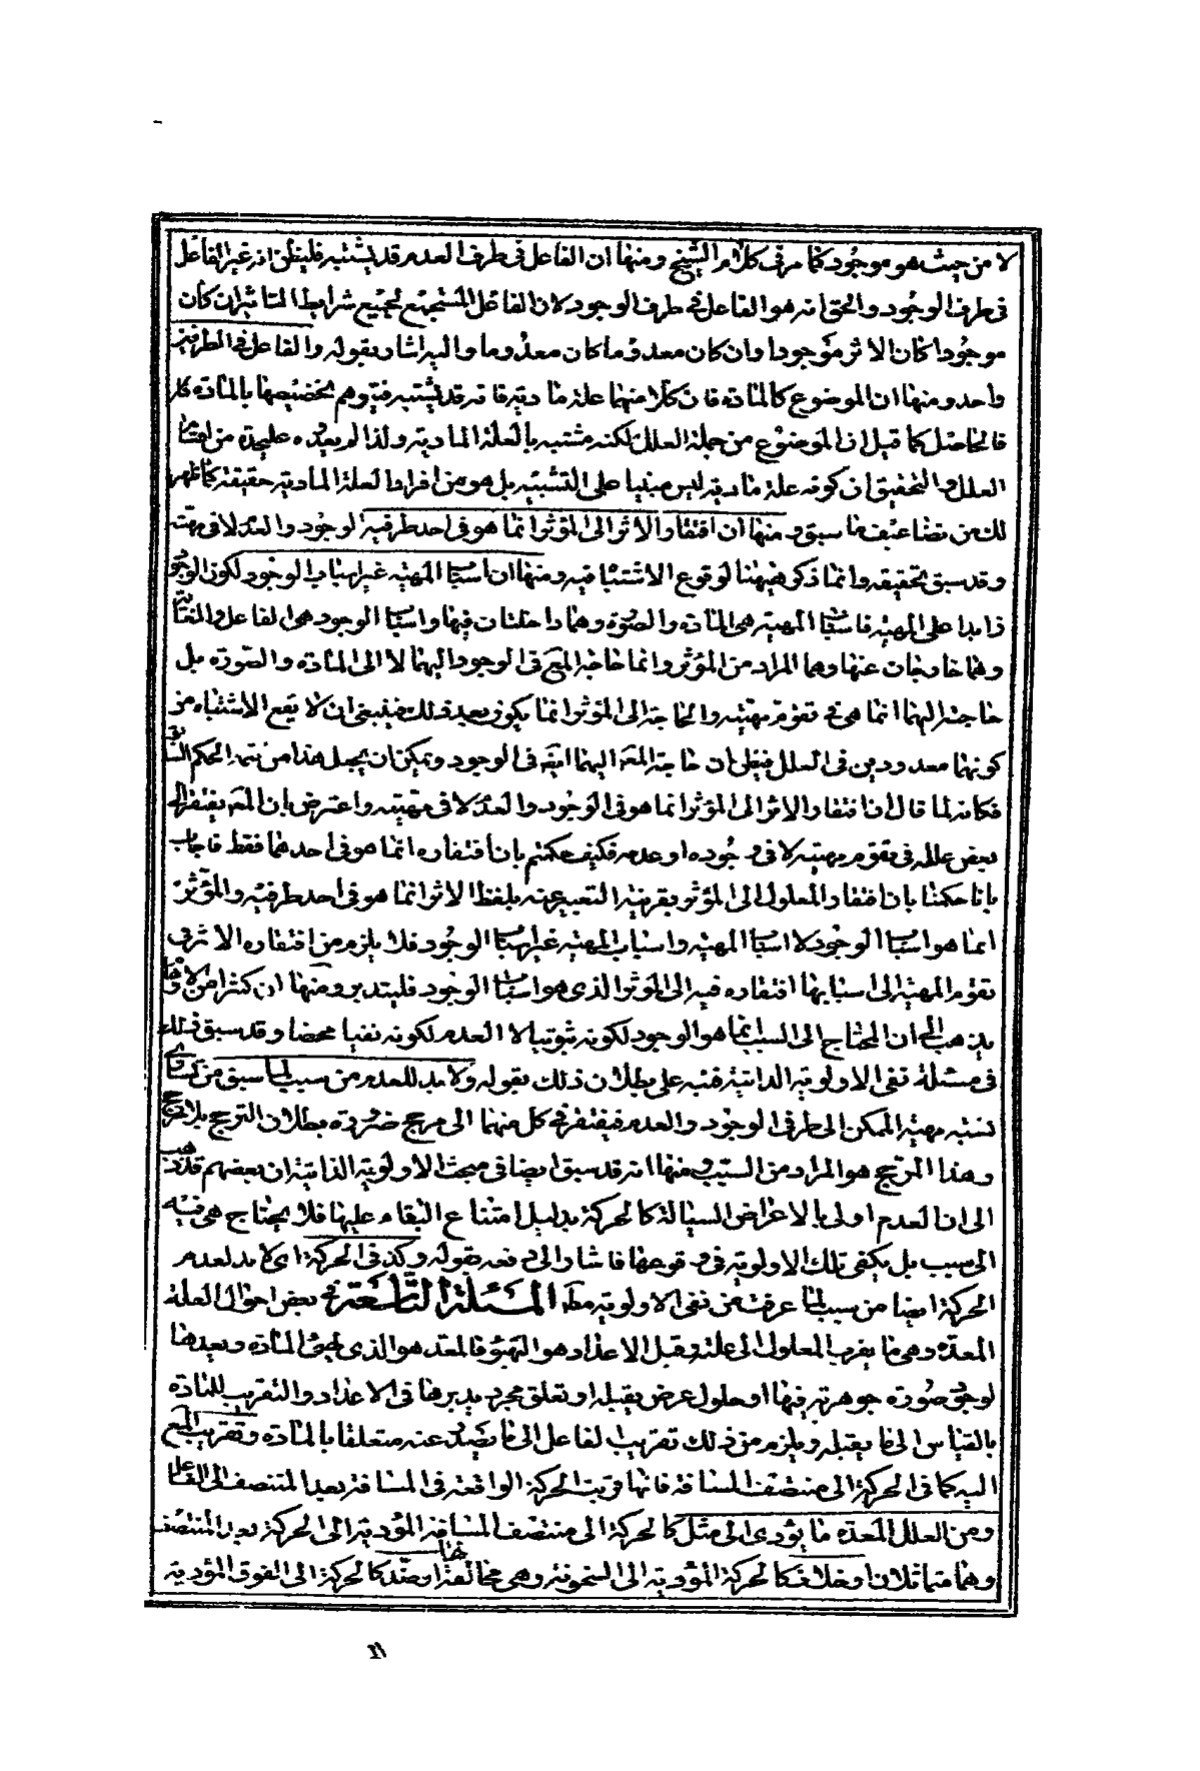 لا من حيث هو موجود كما مر فى كلام الشيخ ومنها ان الفاعل فى طرف العدم قد يشتبه فليظن انه غير الفاعل
فى طرف الوجود والحق انه هو الفاعل فى طرف الوجود لان الفاعل المستجمع لجميع شرايط التاثير ان كان
موجودا كان الاثر موجودا وان كان معدوما كان معدوما واليه اشار بقوله والفاعل فى الطرفين
واحد ومنها ان الموضوع كالمادة فان كلا منهما علة مادية فانه قد يشتبه فيتوهم تخصيصها بالمادة
فالحاصل كما قيل ان الموضوع من جملة العلل لكنه مشتبه بالعلة المادية ولذا لم يعدّه عليحدة من اقسام
العلل والتحقيق ان كونه علة مادية ليس مبنيا على التشبيه بل هو من افراد العلة المادية حقيقة كما ظهر
لك من تضاعيف ما سبق ومنها ان افتقار الاثر الى المؤثر انما هو فى احد طرفيه الوجود والعدم لا فى مهيّته
وقد سبق تحقيقه وانما ذكر هيهنا لوقوع الاشتباه فيه ومنها ان اسباب المهية غير اسباب الوجود لكون الوجود
زايدا على المهية فاسباب المهية هى المادة والصورة وهما داخلتان فيها واسباب الوجود هى الفاعل والغاية
وهما خارجان عنها وهما المراد من المؤثر وانما حاجة المع فى الوجود اليهما لا الى المادة والصورة بل
حاجته اليهما انما هى فى تقوم مهيته والحاجة الى المؤثر انما يكون بعد ذلك فينبغى ان لا يقع الاشتباه من
كونهما معدودين فى العلل فيظن ان حاجة المع اليهما ايضا فى الوجود ويمكن ان يجعل هذا من تتمة الحكم السابق
فكانه لما قال ان افتقار الاثر الى المؤثر انما هو فى الوجود والعدم لا فى مهيته واعترض بان المع يفتقر الى
بعض علله فى تقوم مهيته لا فى وجوده او عدمه فكيف حكمتم بان افتقاره انما هو فى احدهما فقط فاجاب
بانا حكمنا بان افتقار المعلول الى المؤثر بقرينة التعبير عنه بلفظ الاثر انما هو فى احد طرفيه والمؤثر
انما هو اسباب الوجود لا اسباب المهية واسباب المهية غير اسباب الوجود فلا يلزم من افتقاره الاثر فى
تقوم المهية الى اسبابها افتقاره فيه الى المؤثر الذى هو اسباب الوجود فليتدبر ومنها ان كثيرا من الاوهام
يذهب الى ان المحتاج الى السبب انما هو الوجود لكونه ثبوتيا لا العدم لكونه نفيا محضا وقد سبق ذلك
فى مسئلة نفى الاولوية الذاتية فنبه على بطلان ذلك بقوله ولا بد للعدم من سبب لما سبق من تساوى
نسبة مهية الممكن الى طرفى الوجود والعدم فيفتقر فى كل منهما الى مرجح ضرورة بطلان الترجح بلا مرجح
وهذا المرجح هو المراد من السبب ومنها انه قد سبق ايضا فى مبحث الاولوية الذاتية ان بعضهم قد ذهب
الى ان العدم اولى بالاعراض السيالة كالحركة بدليل امتناع البقاء عليها فلا يحتاج هى فيه
الى سبب بل يكفى تلك الاولوية فى وقوعها فاشار الى دفعه بقوله وكذا فى الحركة اى لا بد لعدم
الحركة ايضا من سبب لما عرفت من نفى الاولوية مط المسئلة التاسعة فى بعض احوال العلة
المعدة وهى ما يقرب المعلول الى علته وقيل الاعداد هو التهيؤ فالمعد هو الذى يهيئ المادة ويعدها
لوجود صورة جوهرية فيها او حلول عرض يقبله او تعلق مجرد يدبرها فى الاعداد والتقريب للمادة
بالقياس الى ما يقبله ويلزم من ذلك تقريب الفاعل الى ما يصدر عنه متعلقا بالمادة وتقريب المع
اليه كما فى الحركة الى منتصف المسافة فانها قربت الحركة الواقعة فى المسافة بعد المنتصف الى الفاعل
ومن العلل المعدة ما يؤدى الى مثل كالحركة الى منتصف المسافة المؤدية الى الحركة بعد المنتصف
وهما متماثلان او خلاف كالحركة المؤدية الى السخونة وهى مخالفة لها او ضد كالحركة الى الفوق المؤدية